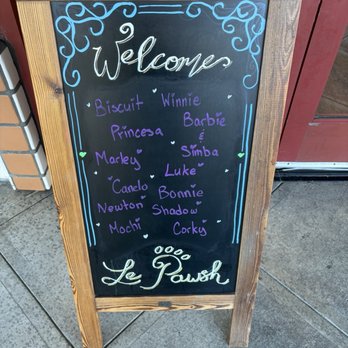 Welcome
Biscuit Winnie
Princesa Barbie
&
Marley Simba
Luke
Canelo Bonnie
Newton Shadow
Mochi Corky
Le Pawsh